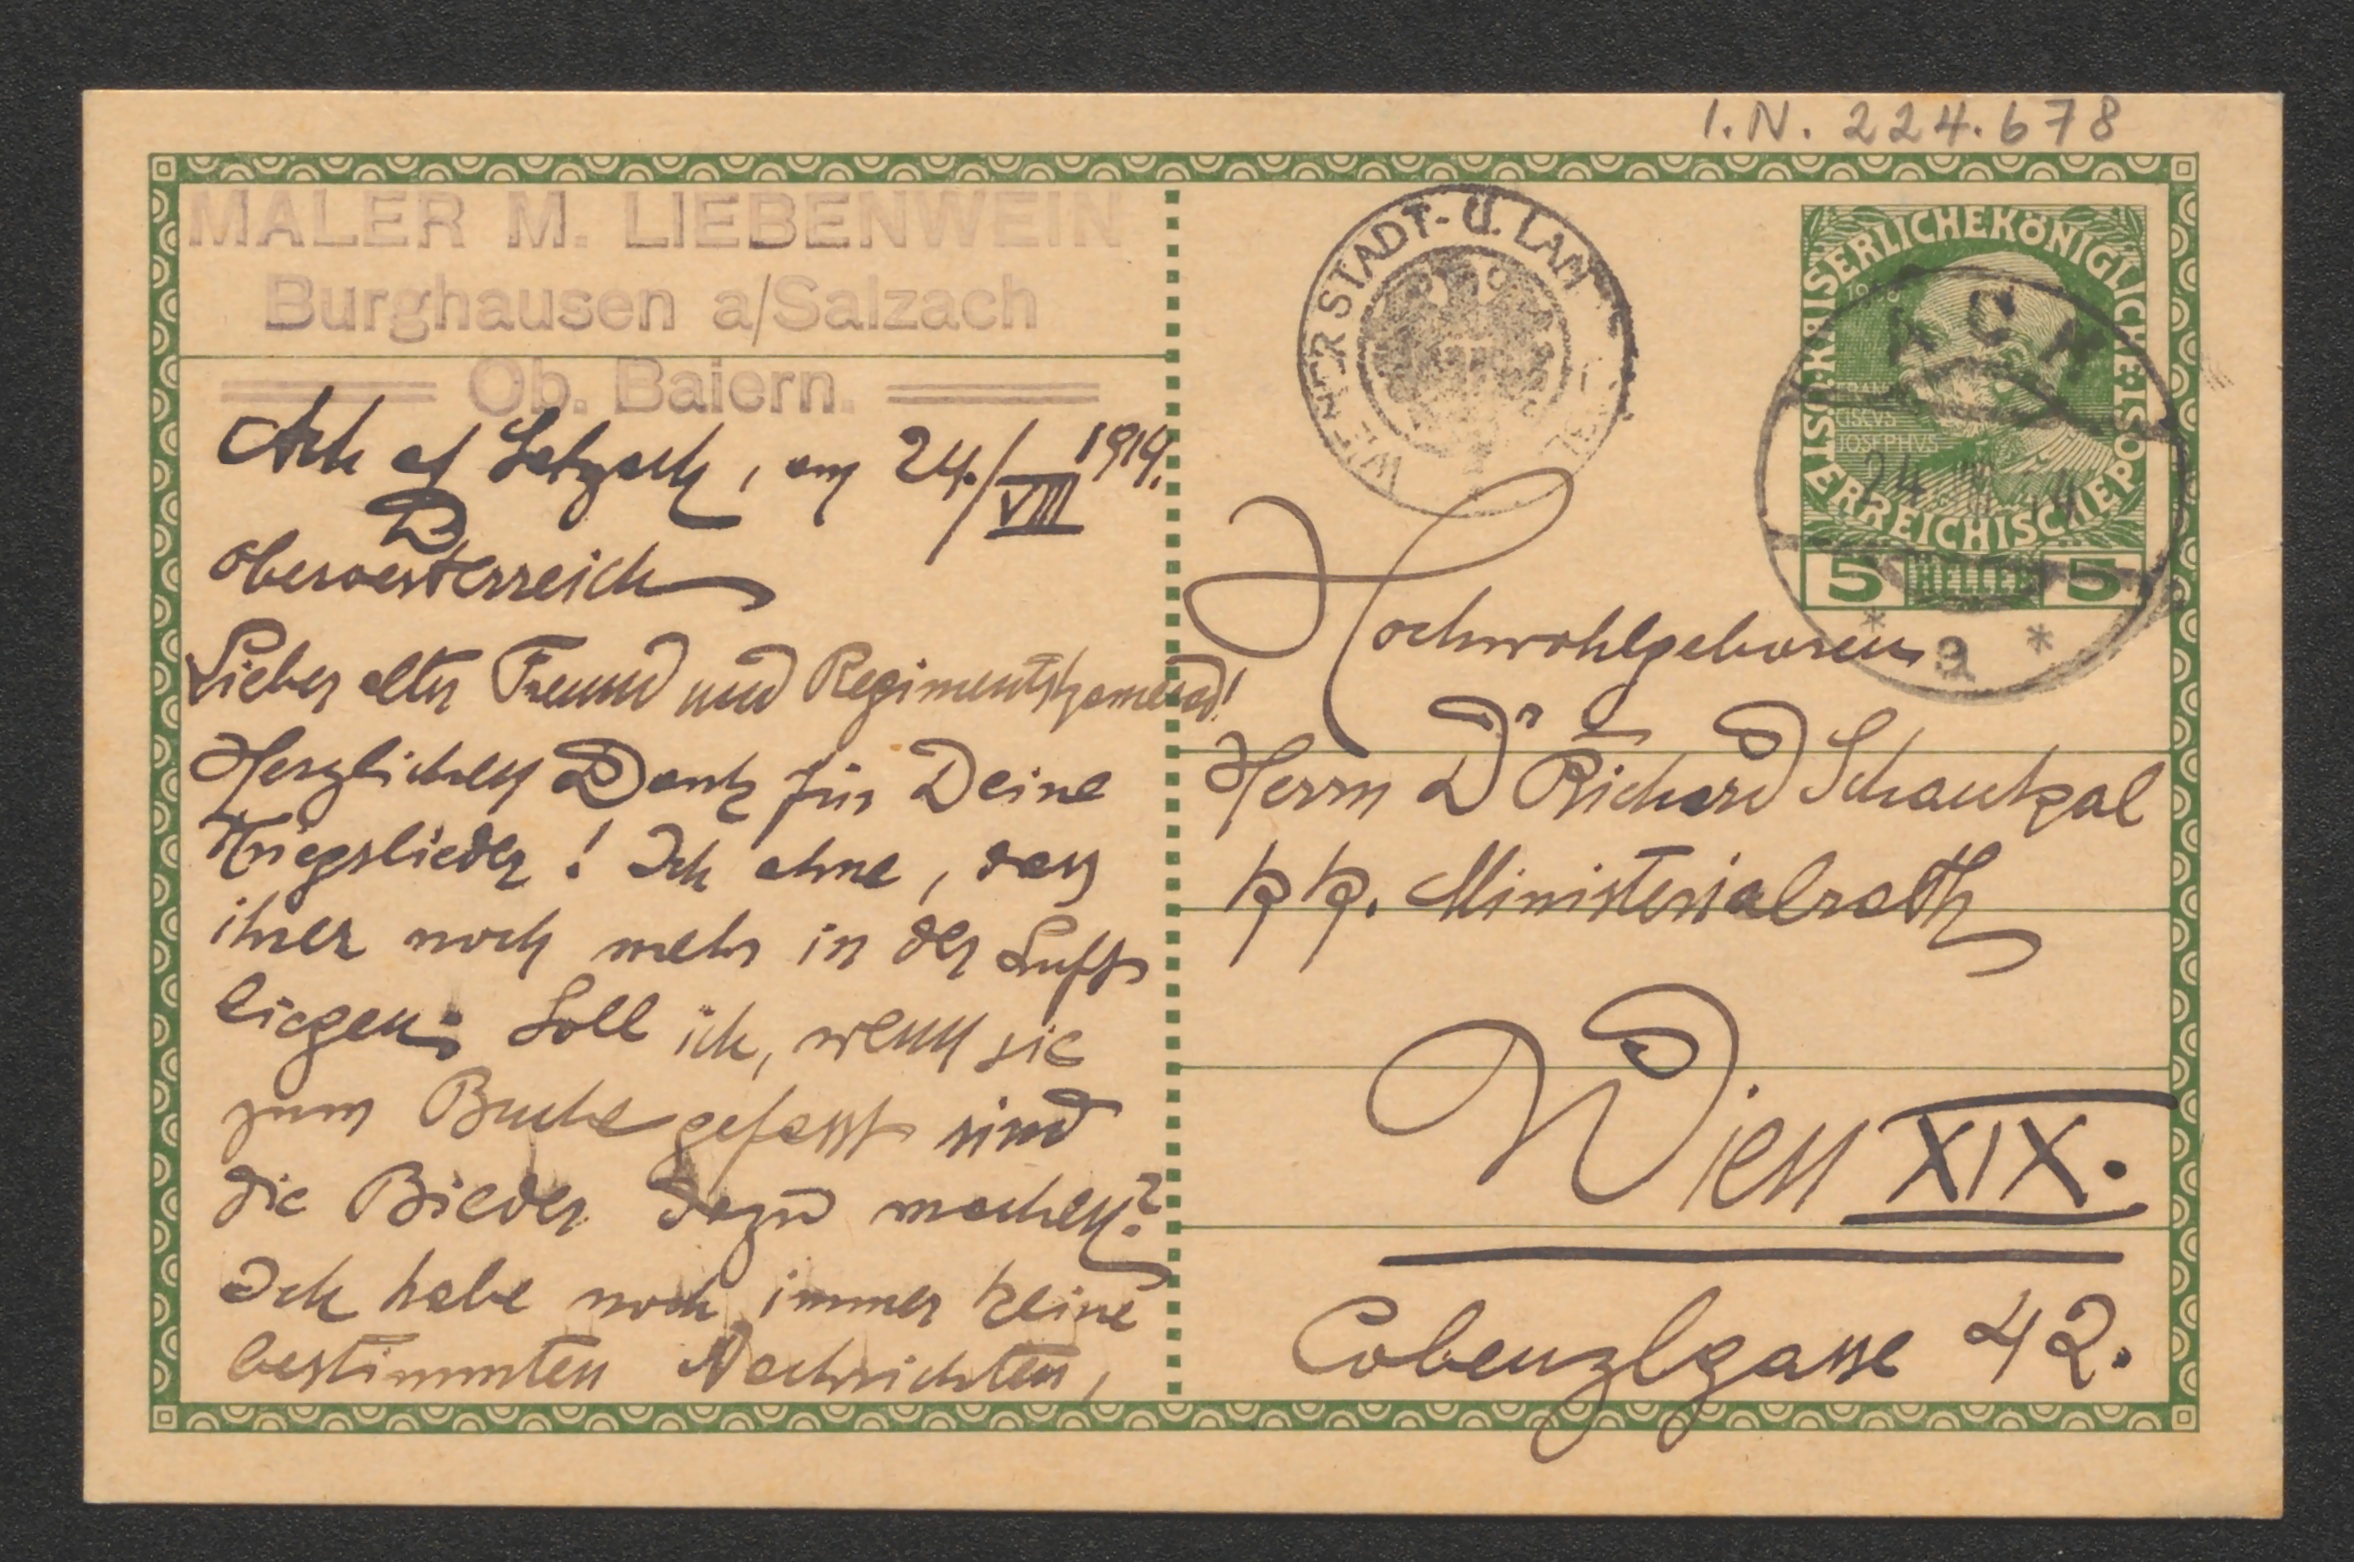 I.N. 224.678
MALER M. LIEBENWEIN
Burghausen a/Salzach
Ob. Baiern.
Ach a/ Salzach, am 24./VIII 1914.
Oberoesterreich
Lieber alter Freund und Regimentskamerad!
Herzlichen Dank für Deine
Kriegslieder! Ich ahne, dass
ihrer noch mehr in der Luft
liegen; Soll ich, wenn sie
zum Buche gefasst sind
die Bilder dazu machen?
Ich habe noch immer keine
bestimmten Nachrichten,
WIENER STADT- U. LAN
KAISERLICHEKÖNIGLICHE
ÖSTERREICHISCHE POST
1908
FRAN
CISCVS
JOSEPHVS
5 HELLER 5
ACH
24 VIII 14
* a *
Hochwohlgeboren
Herrn Dr Richard Schaukal
k k. Ministerialrath
Wien XIX.
Cobenzlgasse 42.